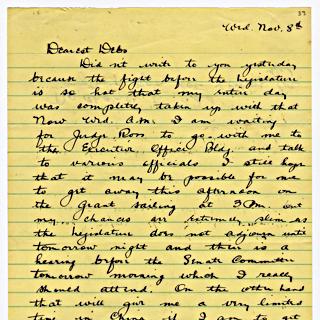 39
Wed. Nov. 8th
Dearest Debs
Didn't write to you yesterday
because the fight before the legislature
is so hot that my entire day
was completely taken up with that
Now Wed. A.M. I am waiting
for Judge Ross to go with me to
the Executive Office Bldg. and talk
to various officials I still hope
that it may be possible for me
to get away this afternoon on
the Grant sailing at 3 P.M. but
my chances are extremely slim as
the legislature does not adjourn until
tomorrow night and there is a
hearing before the Senate Committee
tomorrow morning which I really
should attend. On the other hand
that will give me a very limited
time in China if I am to get